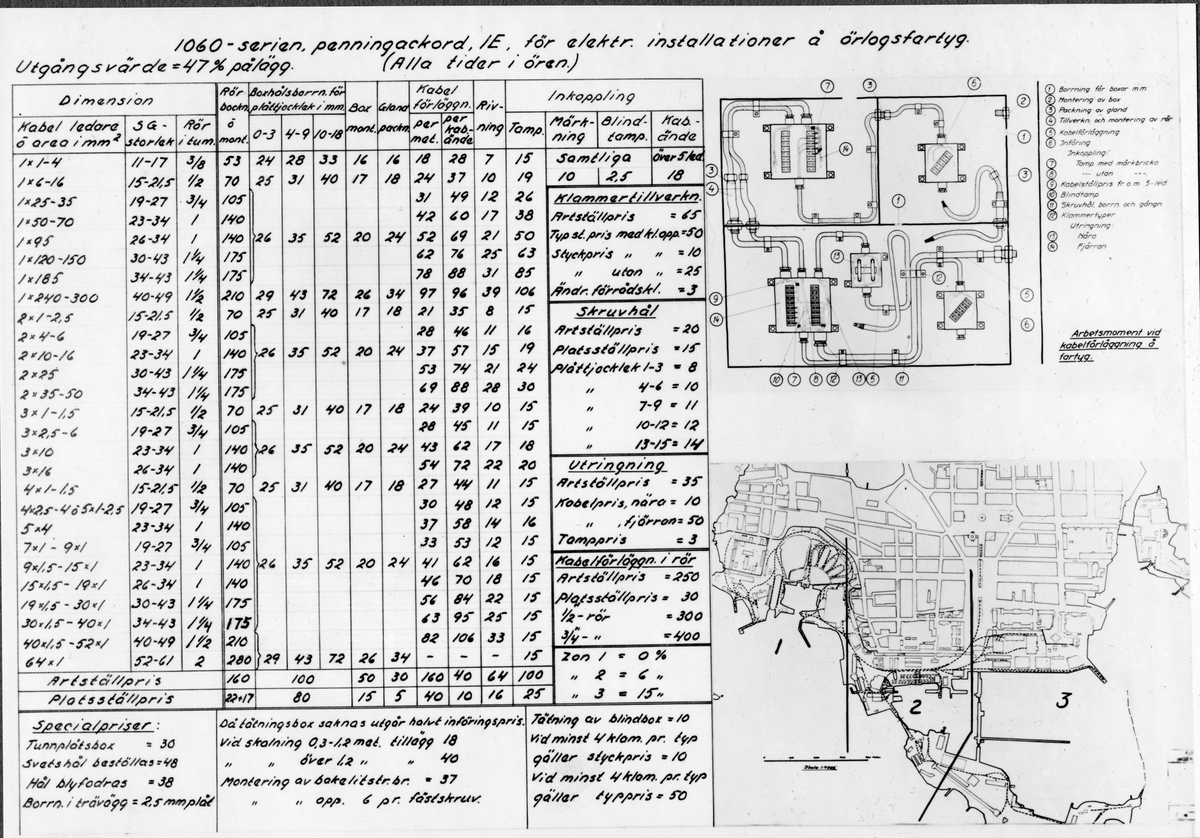 1060-serien, penningackord, IE, för elektr. installationer å örlogsfartyg.
Utgångsvärde=47% pålägg. (Alla tider i ören.)
Dimension Rör bockn. ö mont. Boxhålsborrn. för plåttjocklek i mm. Box mont. Gland packn. Kabel förläggn. Riv- ning Inkoppling
Kabel ledare ö area i mm² SG- storlek Rör i tum. 0-3 4-9 10-18 per met. per kab- ände Tamp. Märk- ning Blind- tamp. Kab.- ände
1×1-4 11-17 3/8 53 24 28 33 16 16 18 28 7 15 Samtliga över 5 led.
1×6-16 15-21,5 1/2 70 25 31 40 17 18 24 37 10 19 10 2,5 18
1×25-35 19-27 3/4 105 31 49 12 26 Klammertillverkn.
1×50-70 23-34 1 140 42 60 17 38 Artställpris = 65
1×95 26-34 1 140 26 35 52 20 24 52 69 21 50 Typst.pris med kl.opp.=50
1×120-150 30-43 1 1/4 175 62 76 25 63 Styckpris „ „ = 10
1×185 34-43 1 1/4 175 78 88 31 85 „ utan „ = 25
1×240-300 40-49 1 1/2 210 29 43 72 26 34 97 96 39 106 Ändr. förrådskl. = 3
2×1-2,5 15-21,5 1/2 70 25 31 40 17 18 21 35 8 15 Skruvhål
2×4-6 19-27 3/4 105 28 46 11 16 Artställpris = 20
2×10-16 23-34 1 140 26 35 52 20 24 37 57 15 19 Platsställpris = 15
2×25 30-43 1 1/4 175 53 74 21 24 Plåttjocklek 1-3 = 8
2×35-50 34-43 1 1/4 175 69 88 28 30 „ 4-6 = 10
3×1-1,5 15-21,5 1/2 70 25 31 40 17 18 24 39 10 15 „ 7-9 = 11
3×2,5-6 19-27 3/4 105 28 45 11 15 „ 10-12 = 12
3×10 23-34 1 140 26 35 52 20 24 43 62 17 18 „ 13-15 = 14
3×16 26-34 1 140 54 72 22 20 Utringning
4×1-1,5 15-21,5 1/2 70 25 31 40 17 18 27 44 11 15 Artställpris = 35
4×2,5-4 ö 5×1-2,5 19-27 3/4 105 30 48 12 15 Kabelpris, nära = 10
5×4 23-34 1 140 37 58 14 16 „ , fjärran = 50
7×1 - 9×1 19-27 3/4 105 33 53 12 15 Tamppris = 3
9×1,5-15×1 23-34 1 140 26 35 52 20 24 41 62 16 15 Kabelförläggn. i rör
15×1,5 - 19×1 26-34 1 140 46 70 18 15 Artställpris = 250
19×1,5 - 30×1 30-43 1 1/4 175 56 84 22 15 Platsställpris = 30
30×1,5-40×1 34-43 1 1/4 175 63 95 25 15 1/2-rör = 300
40×1,5-52×1 40-49 1 1/2 210 82 106 33 15 3/4-„ = 400
64×1 52-61 2 280 29 43 72 26 34 - - - 15 Zon 1 = 0%
Artställpris 160 100 50 30 160 40 64 100 „ 2 = 6 „
Platsställpris 22+17 80 15 5 40 10 16 25 „ 3 = 15 „
Specialpriser:
Tunnplåtsbox = 30
Svetshål beställas=48
Hål blyfodras = 38
Borrn. i trävägg = 2,5 mm plåt
Då tätningsbox saknas utgår halvt införingspris.
Vid skalning 0,3-1,2 met. tillägg 18
„ „ över 1,2 „ „ 40
Montering av bakelitstr. br. = 37
„ „ opp. 6 pr. fästskruv.
Tätning av blindbox = 10
Vid minst 4 klam. pr. typ
gäller styckpris = 10
Vid minst 4 klam. pr. typ
gäller typpris = 50
7 3 6
2
1
3
3
4
14
1
13
12
9
14
5
6
10 7 8 12 13 5 11
1 Borrning för boxar m m
2 Montering av box
3 Packning av gland
4 Tillverkn. och montering av rör
5 Kabelförläggning
6 Införing
Inkoppling:
7 Tamp med märkbricka
8 --- utan ---
9 Kabelställpris fr.o.m 5-led.
10 Blindtamp
11 Skruvhål, borrn. och gängn
12 Klammertyper
Utringning:
13 Nära
14 Fjärran
Arbetsmoment vid
kabelförläggning å
fartyg.
1
2
3